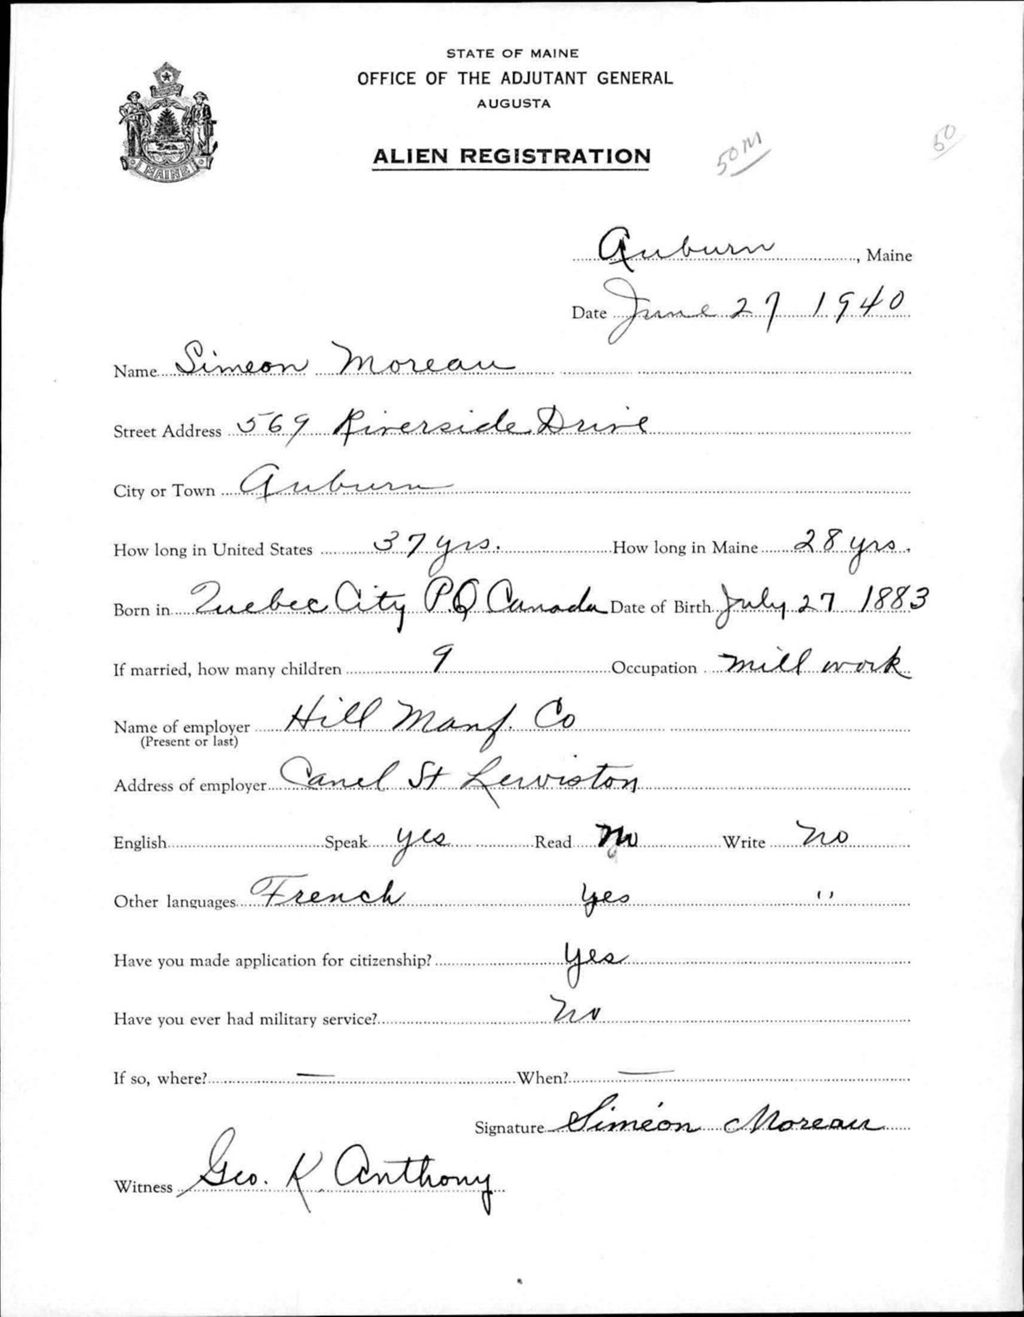 STATE OF MAINE
OFFICE OF THE ADJUTANT GENERAL
AUGUSTA
ALIEN REGISTRATION
50 M
50
MAINE
Auburn, Maine
Date June 27 1940
Name Simeon Moreau
Street Address 569 Riverside Drive
City or Town Auburn
How long in United States 37 yrs. How long in Maine 28 yrs.
Born in Quebec City P.Q Canada Date of Birth July 27 1883
If married, how many children 9 Occupation mill work
Name of employer Hill Manf. Co
(Present or last)
Address of employer Canel St Lewiston
English Speak yes Read no Write no
Other languages French yes "
Have you made application for citizenship? Yes
Have you ever had military service? No
If so, where? — When? —
Signature Siméon Moreau
Witness Geo. K. Anthony